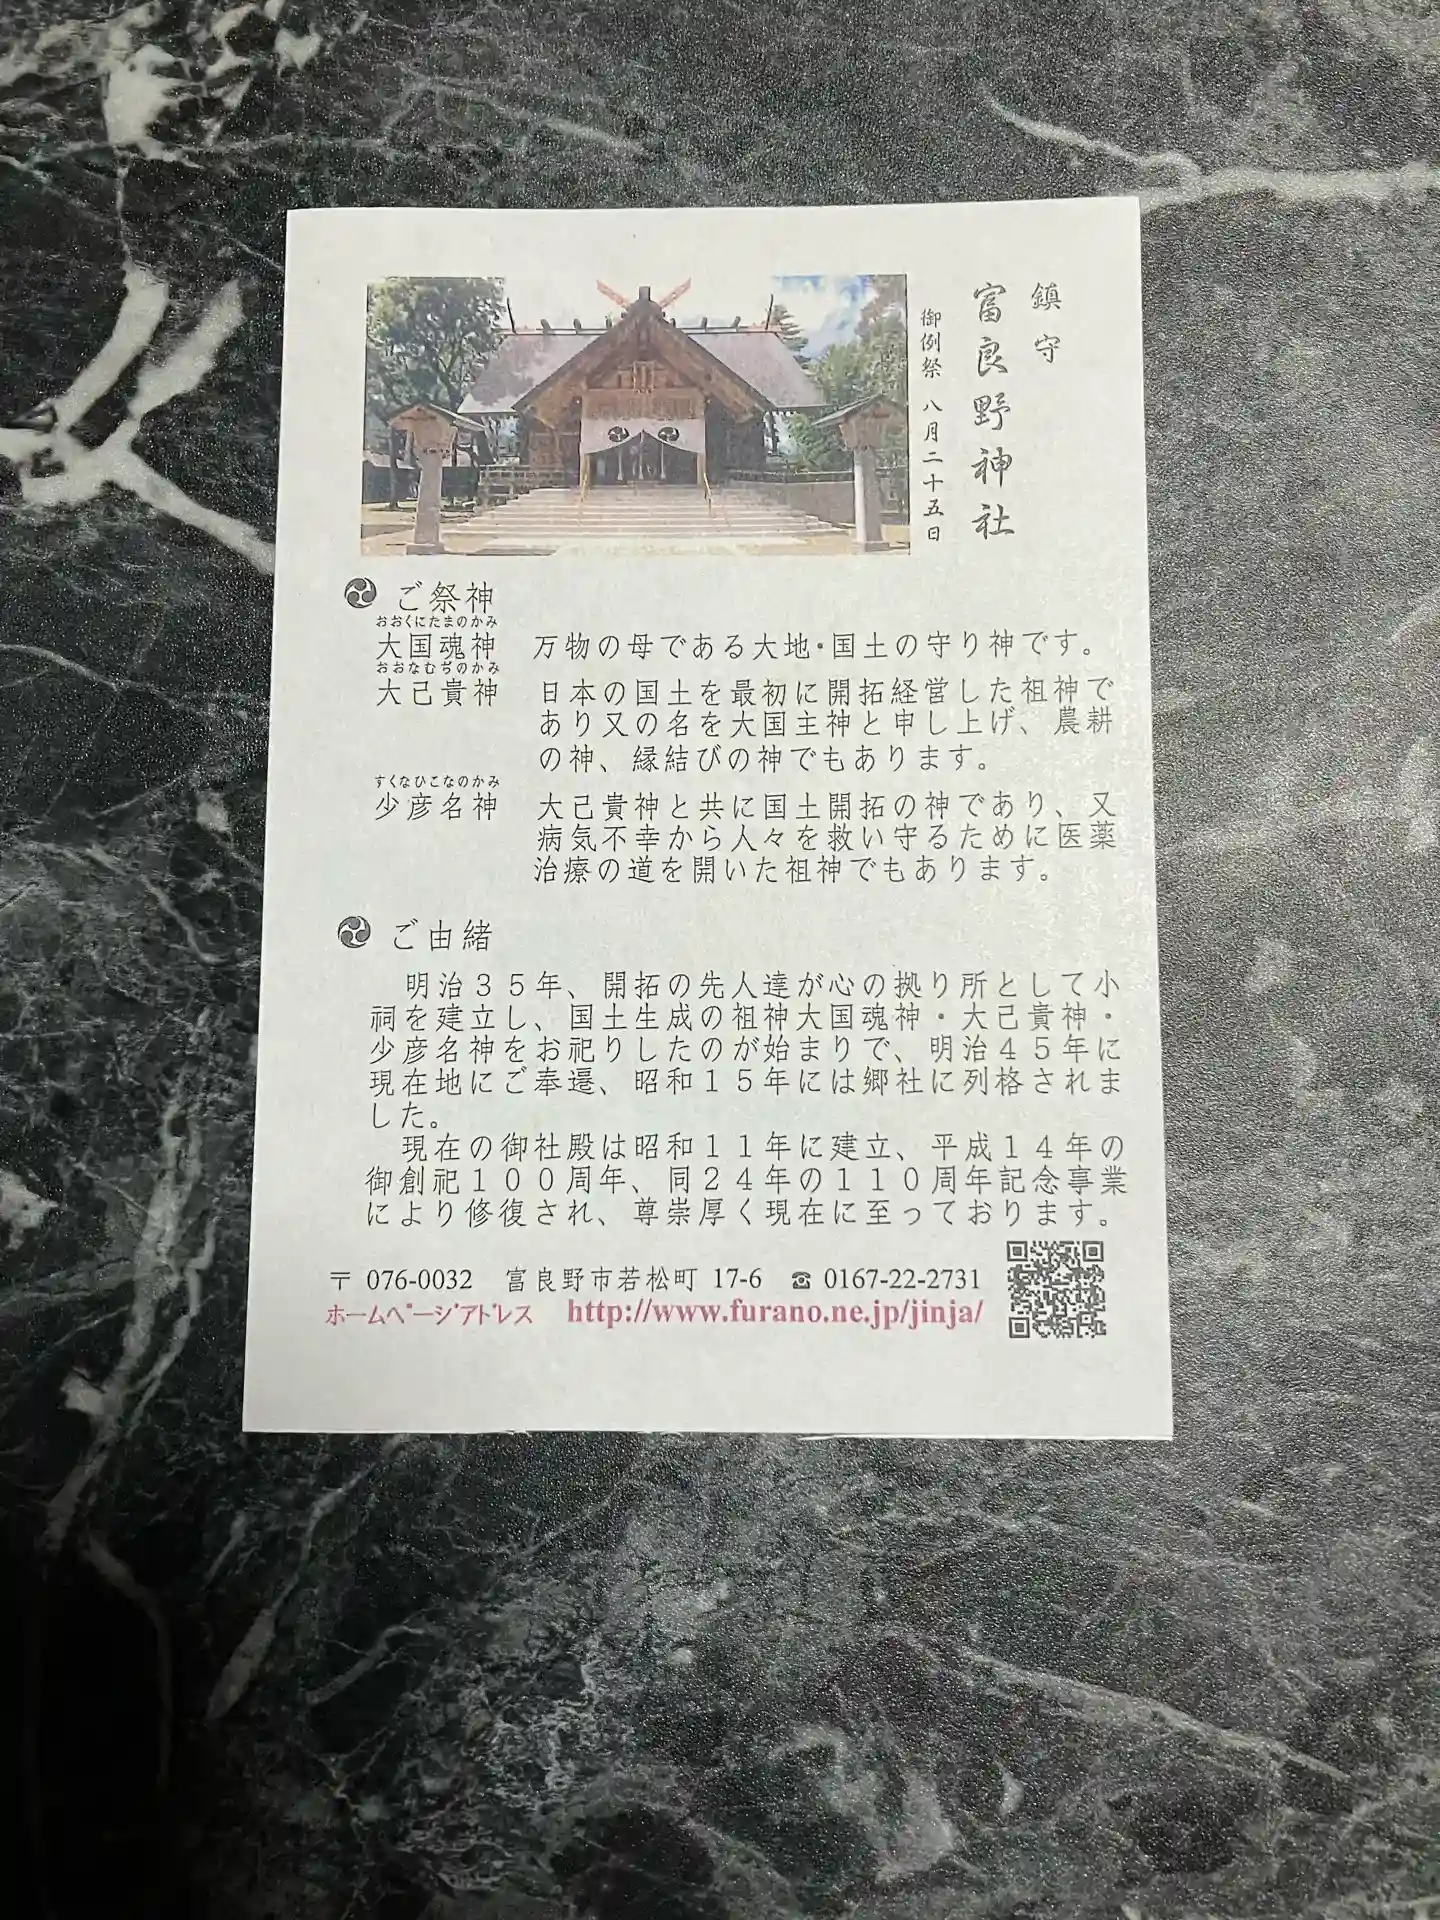 鎮守
富良野神社
御例祭 八月二十五日
ご祭神
おおくにたまのかみ
大国魂神 万物の母である大地・国土の守り神です。
おおなむぢのかみ
大己貴神 日本の国土を最初に開拓経営した祖神で
あり又の名を大国主神と申し上げ、農耕
の神、縁結びの神でもあります。
すくなひこなのかみ
少彦名神 大己貴神と共に国土開拓の神であり、又
病気不幸から人々を救い守るために医薬
治療の道を開いた祖神でもあります。
ご由緒
明治35年、開拓の先人達が心の拠り所として小
祠を建立し、国土生成の祖神大国魂神・大己貴神・
少彦名神をお祀りしたのが始まりで、明治45年に
現在地にご奉遷、昭和15年には郷社に列格されま
した。
現在の御社殿は昭和11年に建立、平成14年の
御創祀100周年、同24年の110周年記念事業
により修復され、尊崇厚く現在に至っております。
〒 076-0032 富良野市若松町 17-6 ☎ 0167-22-2731
ホームページアドレス http://www.furano.ne.jp/jinja/